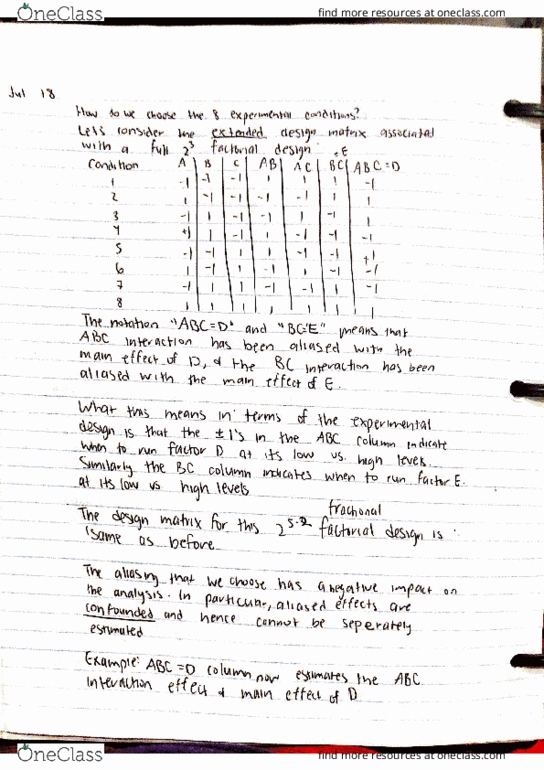 OneClass
find more resources at oneclass.com
Jul 18
How do we choose the 8 experimental conditions?
Let's consider the extended design matrix associated
with a full 2³ factorial design
=E
Condition A B C AB AC BC ABC=D
1 -1 -1 -1 1 1 1 -1
2 1 -1 -1 -1 -1 1 1
3 -1 1 -1 -1 1 -1 1
4 +1 1 -1 1 -1 -1 -1
5 -1 -1 1 1 -1 -1 +1
6 1 -1 1 -1 1 -1 -1
7 -1 1 1 -1 -1 1 -1
8 1 1 1 1 1 1 1
The notation "ABC=D" and "BC=E" means that
ABC interaction has been aliased with the
main effect of D, & the BC interaction has been
aliased with the main effect of E.
What this means in terms of the experimental
design is that the ±1's in the ABC column indicate
when to run factor D at its low vs. high levels.
Similarly the BC column indicates when to run factor E.
at its low vs high levels
fractional
The design matrix for this 2^5-2 factorial design is
same as before
The aliasing that we choose has a negative impact on
the analysis. In particular, aliased effects are
confounded and hence cannot be seperately
estimated
Example: ABC=D column now estimates the ABC
interaction effect & main effect of D
OneClass
find more resources at oneclass.com